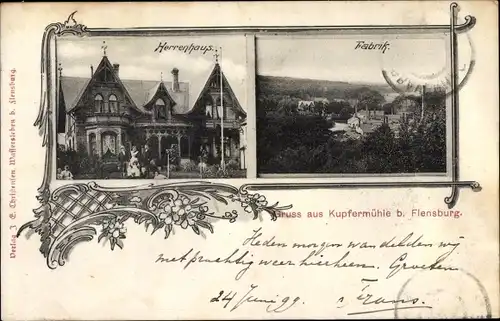 Herrenhaus.
Fabrik.
Verlag J. C. Christensen, Wassersleben b. Flensburg.
Gruss aus Kupfermühle b. Flensburg.
Heden morgen wandelden wij
met prachtig weer hierheen. Groeten
24 Juni 99. Frans.